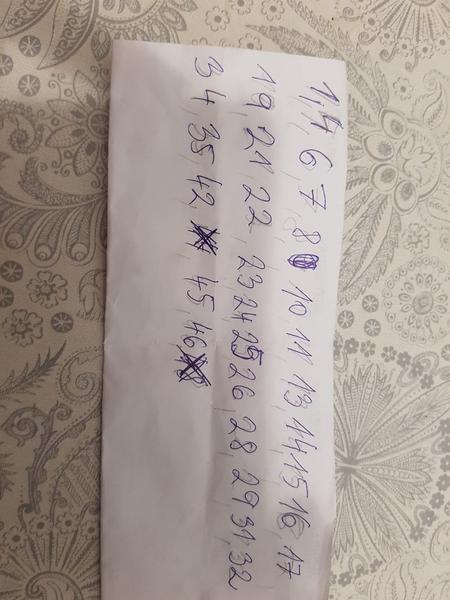 1,4 6,7,8 10 11 13,14,15 16,17
19,21,22,23,24 25 26,28,29 31,32
34,35,42 45,46